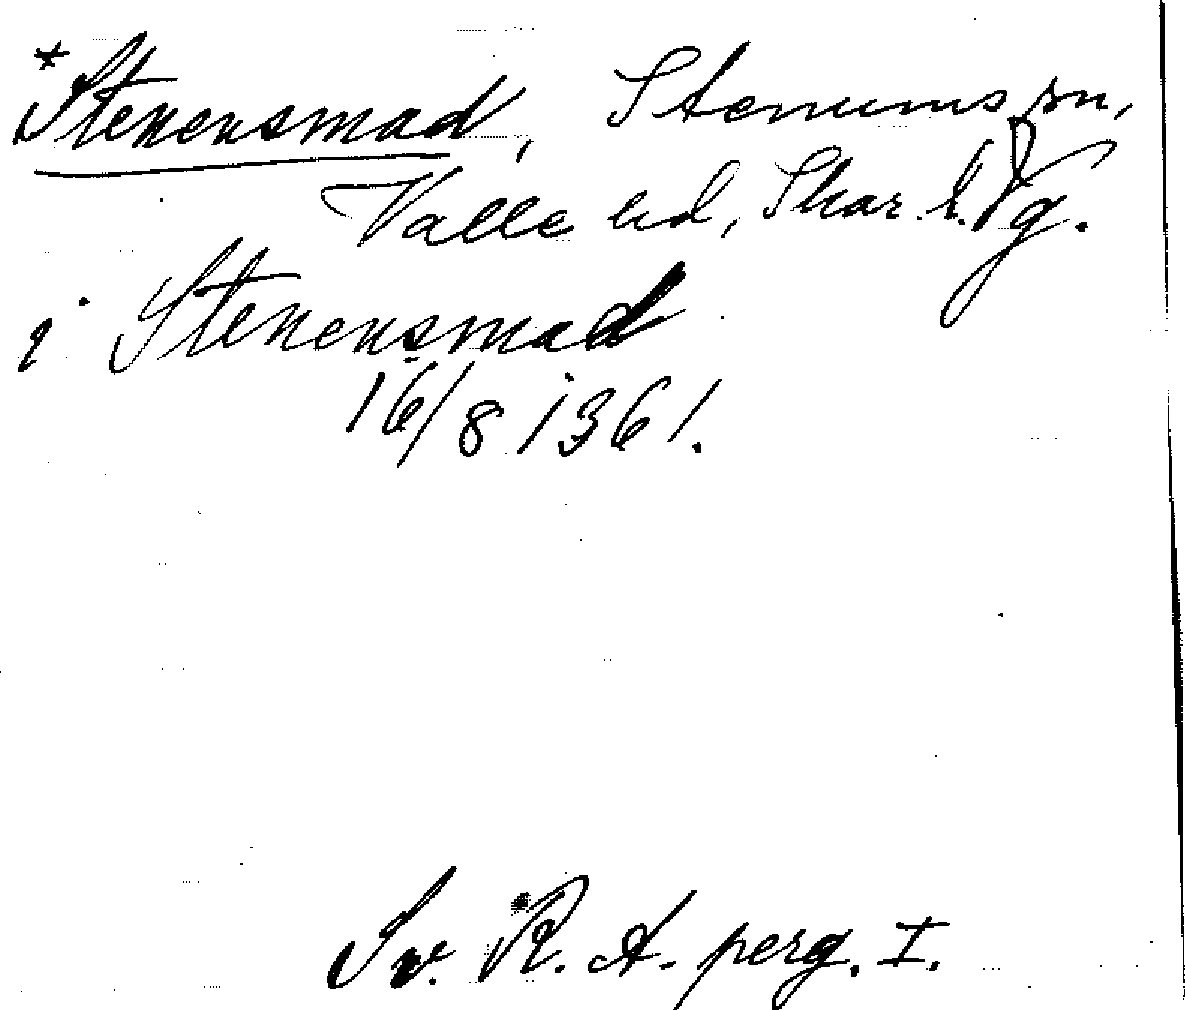 *Stenensmad, Stenums sn,
Valle hd, Skar. l. Vg.
i Stenensmad
16/8 1361.
Sv. R. A. perg. I.